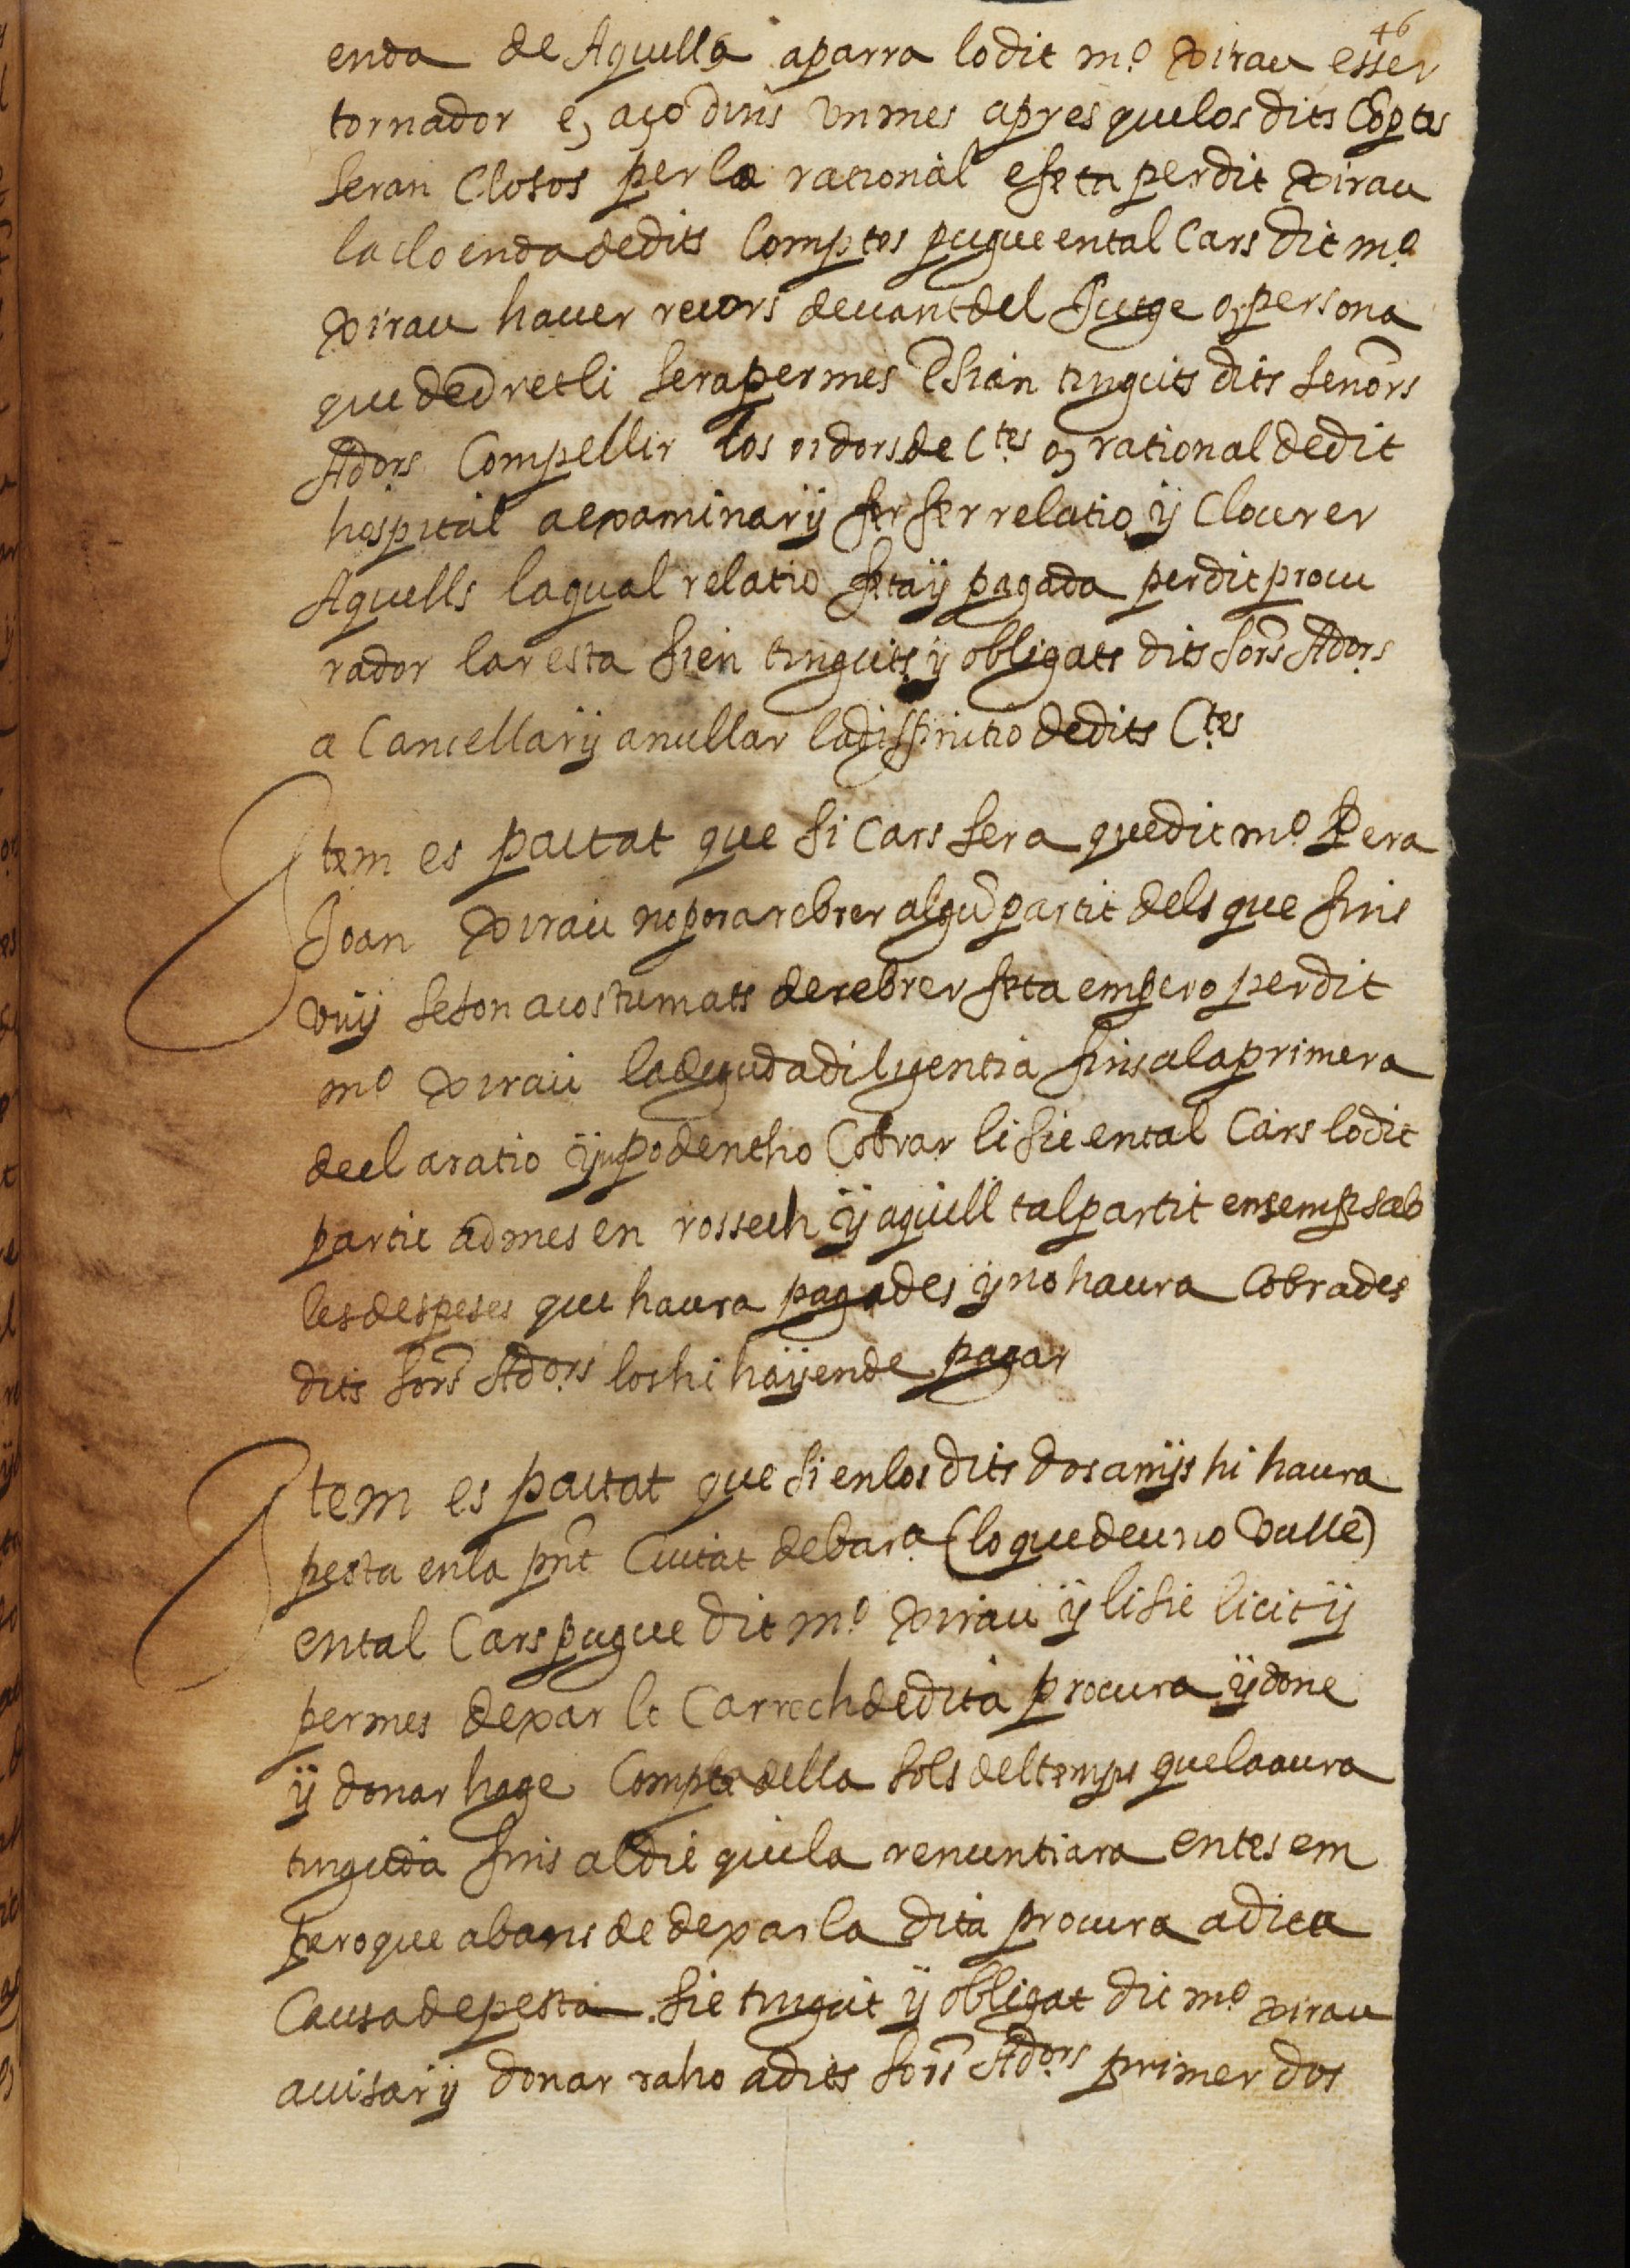 46
enda de Aquella aparra lo dit mº Xirau esser
tornador e, aço dins un mes apres que los dits Coptes
seran Closos per lo rational e feta per dit Xirau
la cloenda de dits Comptes pugue en tal Cars dit mº
Xirau haver recors devant del Jutge o, persona
que de dret li sera permes E sian tinguts dits senors
Adors Compellir los oidors de Ctes o, rational de dit
hospital a examinar ÿ fer fer relatio ÿ Clourer
Aquells la qual relatio feta ÿ pagada per dit procu
rador la resta sien tinguts ÿ obligats dits sors Adors
a Cancellar ÿ anullar la diffinitio de dits Ctes
Item es pactat que si Cars sera que dit mº Pera
Joan Xirau no pora rebrer algu partit dels que fins
vuÿ se son acostumats de rebrer feta empero per dit
mº Xirau la deguda diligentia fins a la primera
declaratio ÿ no podentho Cobrar li sie en tal Cars lo dit
partit admes en rossech ÿ aquell tal partit ensemps ab
les despeses que haura pagades ÿ no haura Cobrades
dits sors Adors los hi haÿen de pagar
Item es pactat que si en los dits dos anÿs hi haura
pesta en la pnt Ciutat de Bara (lo que deu no vulle)
en tal Cars pugue dit mº Xirau ÿ li sie licit ÿ
permes dexar lo Carrech de dita procura ÿ done
ÿ donar hage Compte della sols del temps que la aura
tinguda fins al die que la renuntiara entes em
pero que abans de dexar la dita procura a dita
Causa de pesta sie tingut ÿ obligat dit mº Xirau
avisar ÿ donar raho a dits sors Adors primer dos